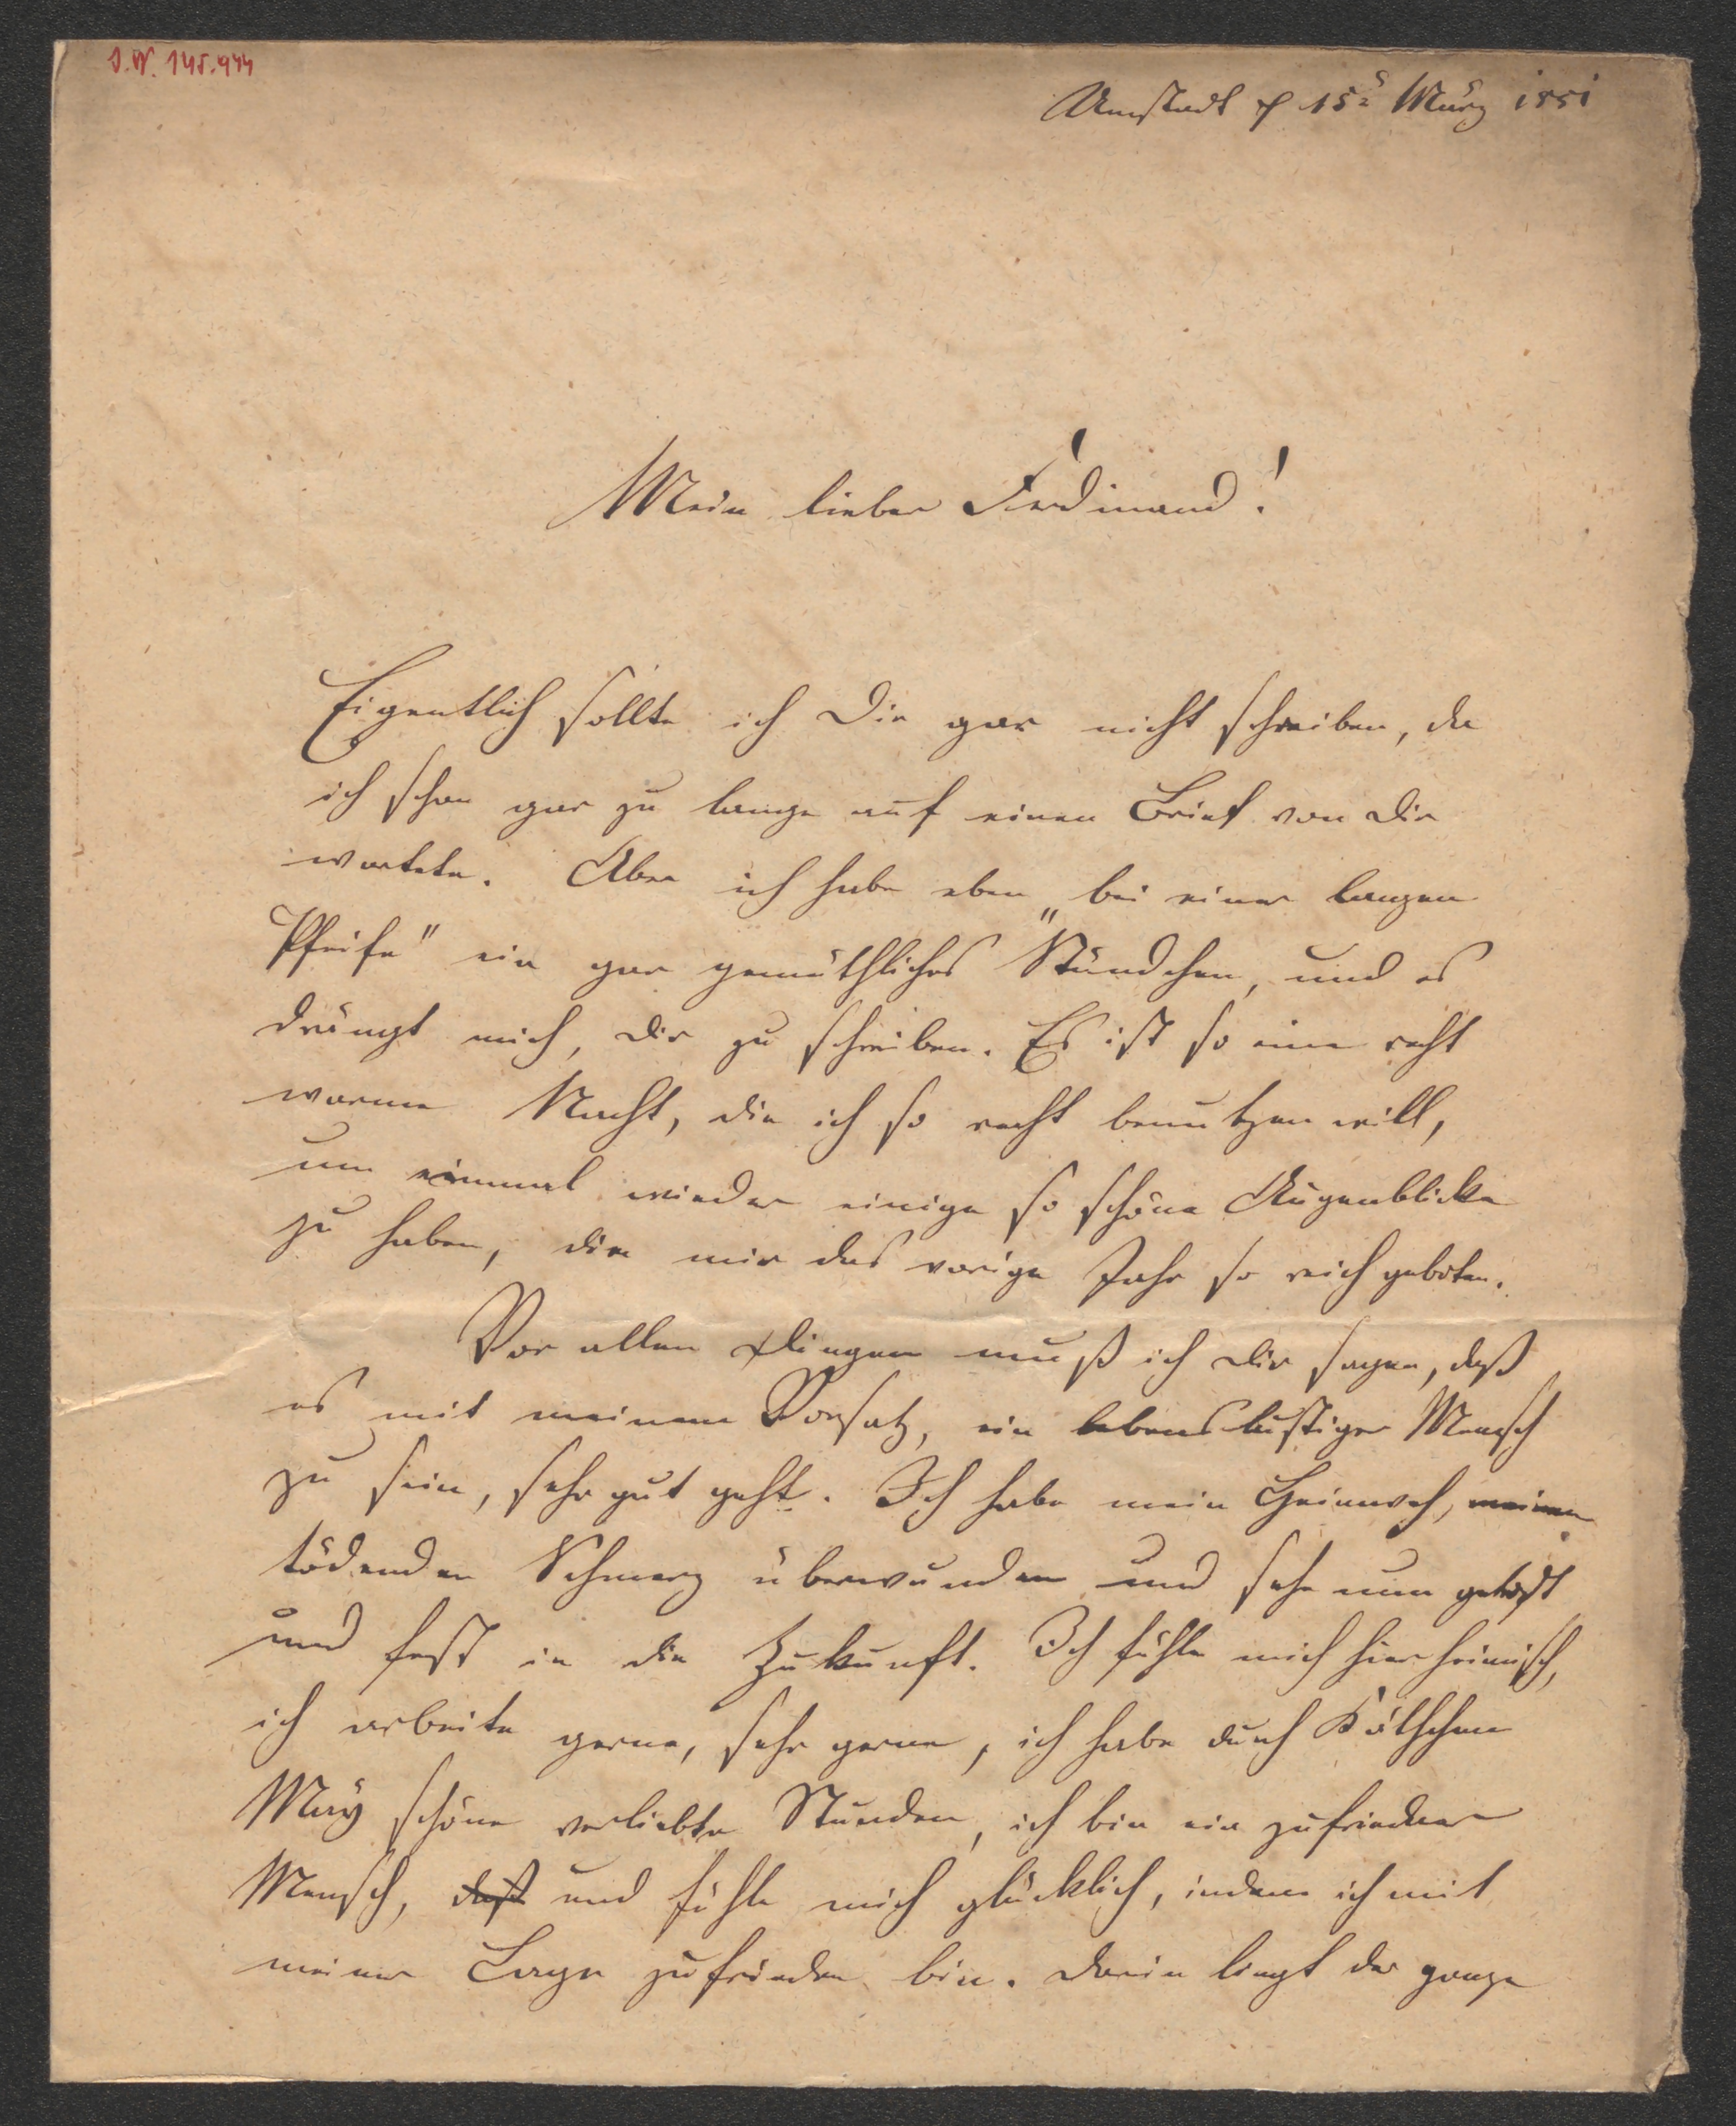 I.N. 145.944
Umstadt 15 März 1851
Mein lieber Ferdinand!
Eigentlich sollte ich Dir gar nicht schreiben, da
ich schon gar zu lange auf einen Brief von Dir
wartete. Aber ich habe eben „bei einer langen
Pfeife" ein gar gemüthliches Stündchen, und es
drängt mich, Dir zu schreiben. Es ist so eine recht
warme Nacht, die ich so recht benutzen will,
um einmal wieder einige so schöne Augenblicke
zu haben, die mir das vorige Jahr so reich geboten.
Vor allen Dingen muß ich Dir sagen, daß
es mit meinem Vorsatz, ein lebenslustiger Mensch
zu sein, sehr gut geht. Ich habe mein Heimweh, meinen
tödenden Schmerz überwunden und sehe nun getrost
und fest in die Zukunft. Ich fühle mich hier heimisch,
ich arbeite gerne, sehr gerne, ich habe durch
May schöne verliebte Stunden, ich bin ein zufriedner
Mensch, daß und fühle mich glücklich, indem ich mit
meiner Lage zufrieden bin. Darin liegt der ganze